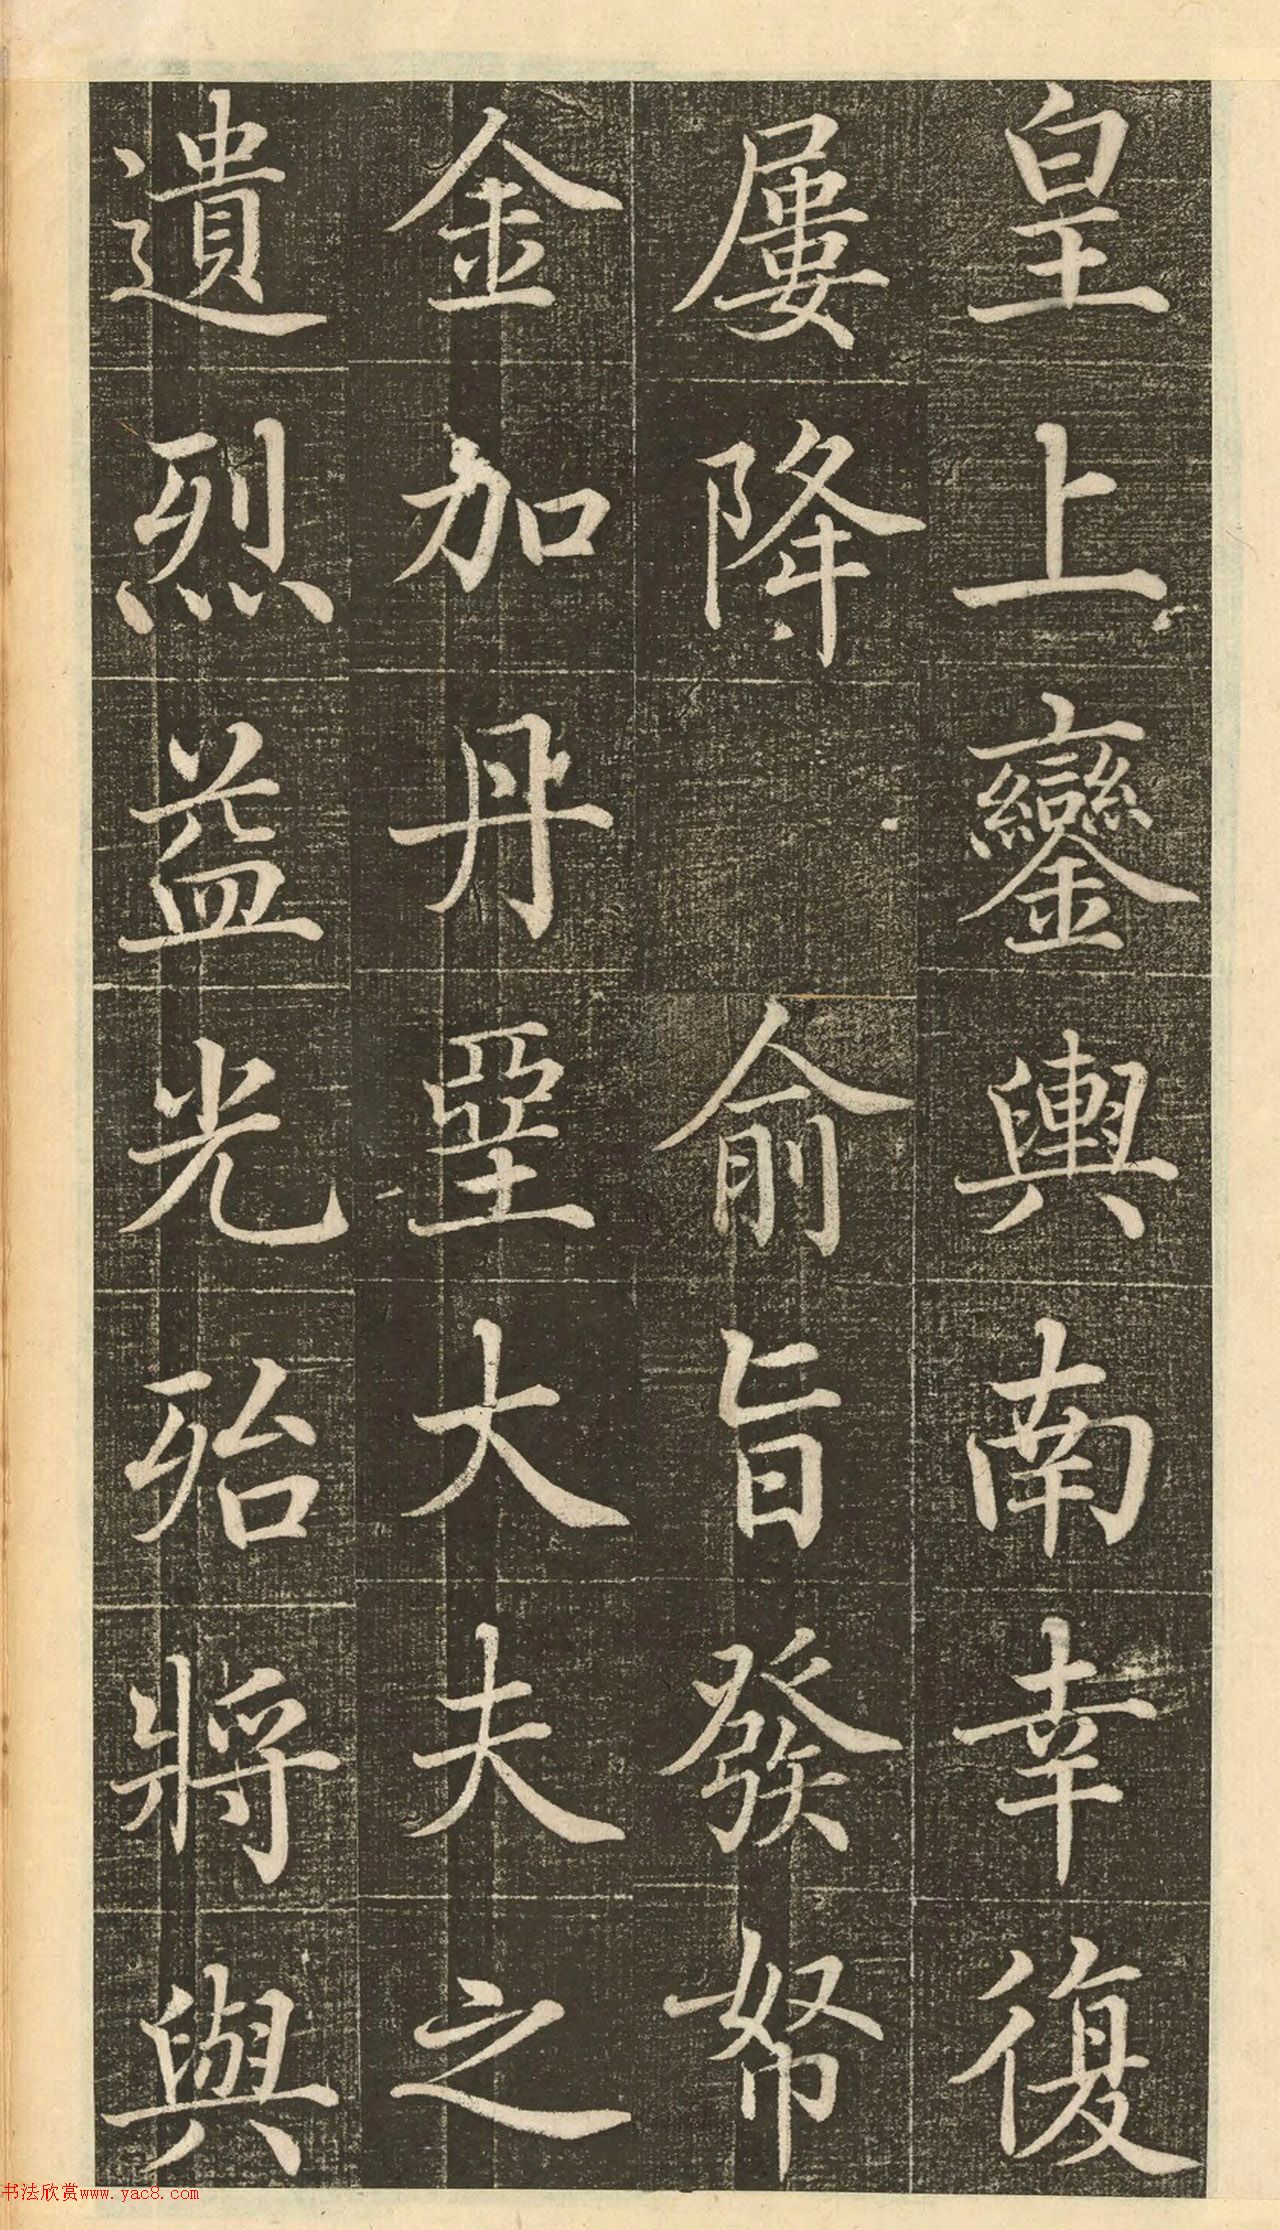 皇上鑾輿南幸復
屢降俞旨發帑
金加丹堊大夫之
遺烈益光殆將與
书法欣赏www.yac8.com